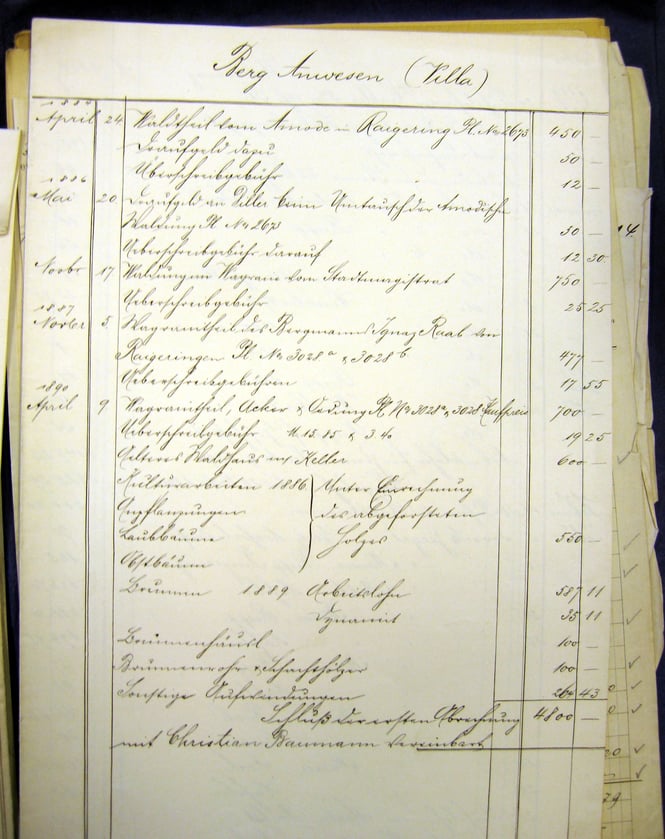 Berg Anwesen (Villa)
1884
April 24 Waldtheil vom Amode in Raigering Pl. No 2673 450 —
Draufgeld dazu 50 —
Überschreibgebühr 12 —
1886
Mai 20 Draufgeld an Diller beim Umtausch der Amodischen
Waldung Pl No 2673 30 —
Ueberschreibgebühr darauf 12 30
Novbr 17 Waldung am Wagrain vom Stadtmagistrat 750 —
Ueberschreibgebühr 25 25
1887
Novbr 5. Wagraintheil des Bergmanns Ignaz Raab von
Raigeringen Pl No 3028a & 3028b 477 —
Ueberschreibgebühren 17 55
1890
April 9 Wagraintheil, Acker & Oedung Pl No 3028a & 3028b Kaufpreis 700 —
Ueberschreibgebühr M. 15.85 & 3.40 19 25
Aelteres Waldhaus mit Keller 600 —
Kulturarbeiten 1886 Unter Einrechnung
Anpflanzungen des abgeforsteten
Laubbäume Holzes 550 —
Obstbäume
Brunnen 1889 Arbeitslohn 587 11
Dynamit 35 11
Brunnenhäusl 100 —
Brunnenrohr & Schachthölzer 100 —
Sonstige Aufwendungen 264 43
Schluß der ersten Abrechnung 4800 —
mit Christian Baumann vereinbart